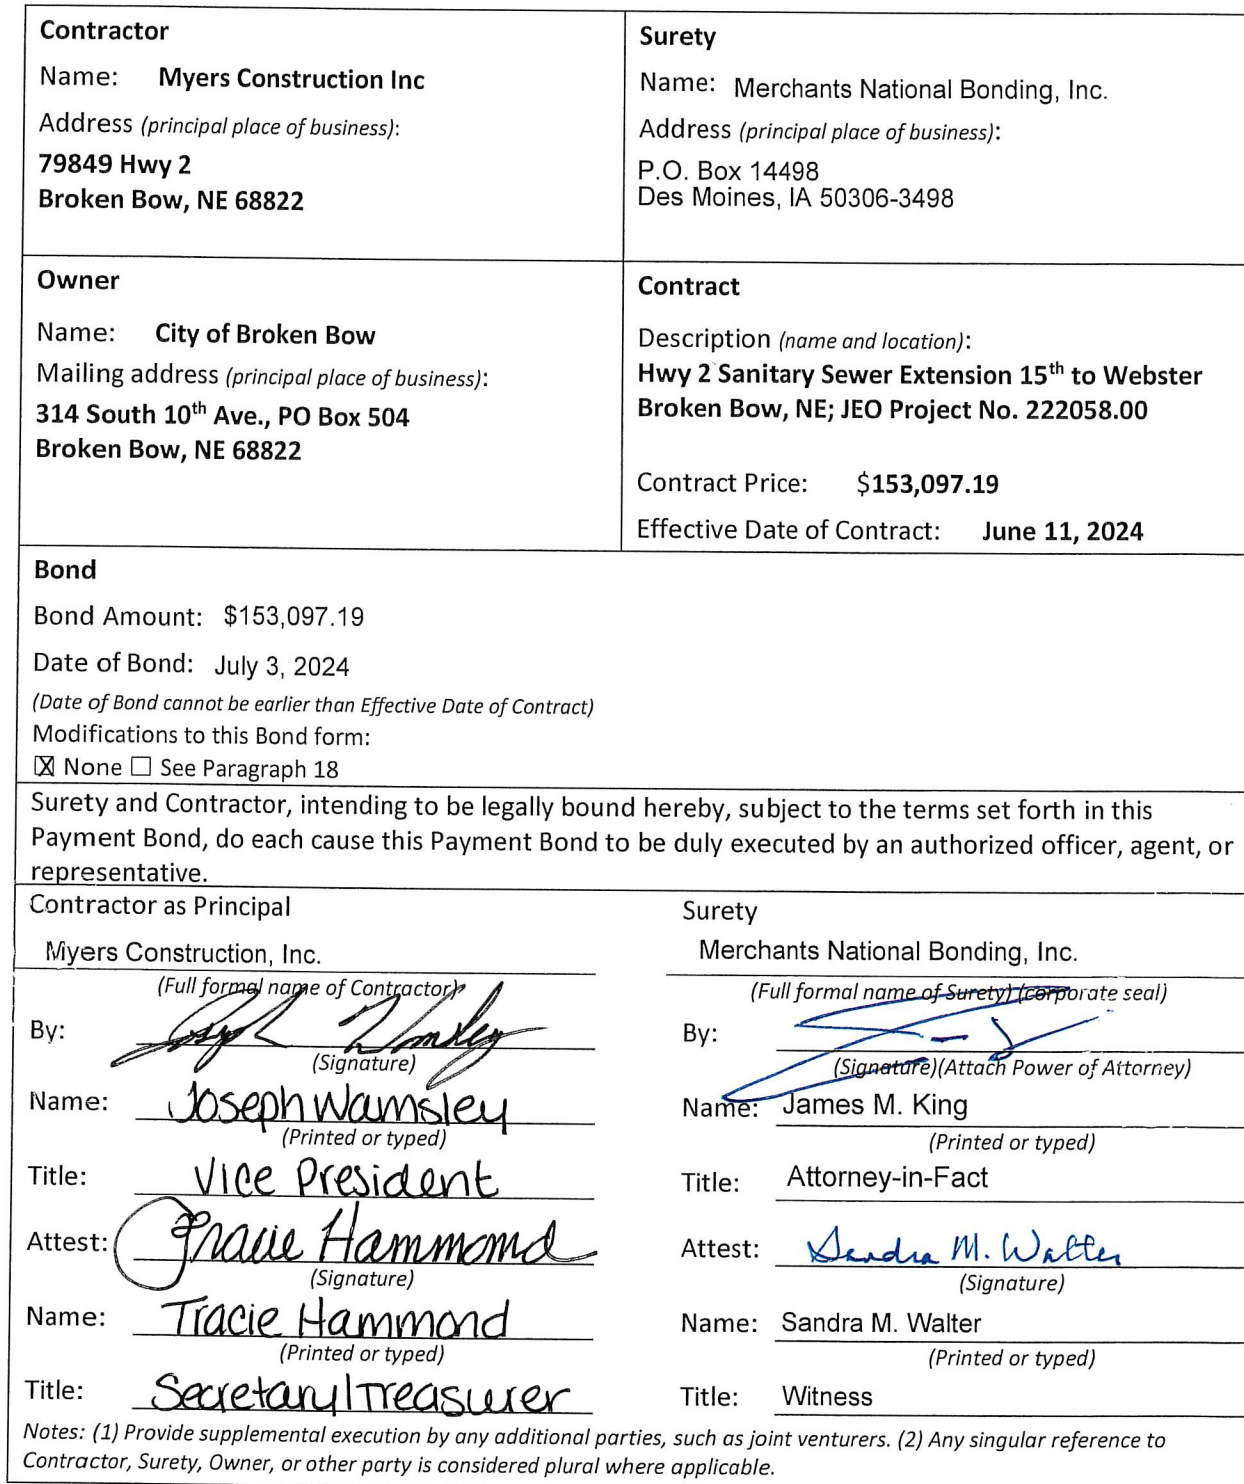 Contractor
Name: Myers Construction Inc
Address (principal place of business):
79849 Hwy 2
Broken Bow, NE 68822
Surety
Name: Merchants National Bonding, Inc.
Address (principal place of business):
P.O. Box 14498
Des Moines, IA 50306-3498
Owner
Name: City of Broken Bow
Mailing address (principal place of business):
314 South 10th Ave., PO Box 504
Broken Bow, NE 68822
Contract
Description (name and location):
Hwy 2 Sanitary Sewer Extension 15th to Webster
Broken Bow, NE; JEO Project No. 222058.00
Contract Price: $153,097.19
Effective Date of Contract: June 11, 2024
Bond
Bond Amount: $153,097.19
Date of Bond: July 3, 2024
(Date of Bond cannot be earlier than Effective Date of Contract)
Modifications to this Bond form:
☒ None ☐ See Paragraph 18
Surety and Contractor, intending to be legally bound hereby, subject to the terms set forth in this
Payment Bond, do each cause this Payment Bond to be duly executed by an authorized officer, agent, or
representative.
Contractor as Principal
Myers Construction, Inc.
(Full formal name of Contractor)
By: Joseph Wamsley
(Signature)
Name: Joseph Wamsley
(Printed or typed)
Title: Vice President
Attest: Tracie Hammond
(Signature)
Name: Tracie Hammond
(Printed or typed)
Title: Secretary/Treasurer
Surety
Merchants National Bonding, Inc.
(Full formal name of Surety) (corporate seal)
By:
(Signature)(Attach Power of Attorney)
Name: James M. King
(Printed or typed)
Title: Attorney-in-Fact
Attest: Sandra M. Walter
(Signature)
Name: Sandra M. Walter
(Printed or typed)
Title: Witness
Notes: (1) Provide supplemental execution by any additional parties, such as joint venturers. (2) Any singular reference to
Contractor, Surety, Owner, or other party is considered plural where applicable.